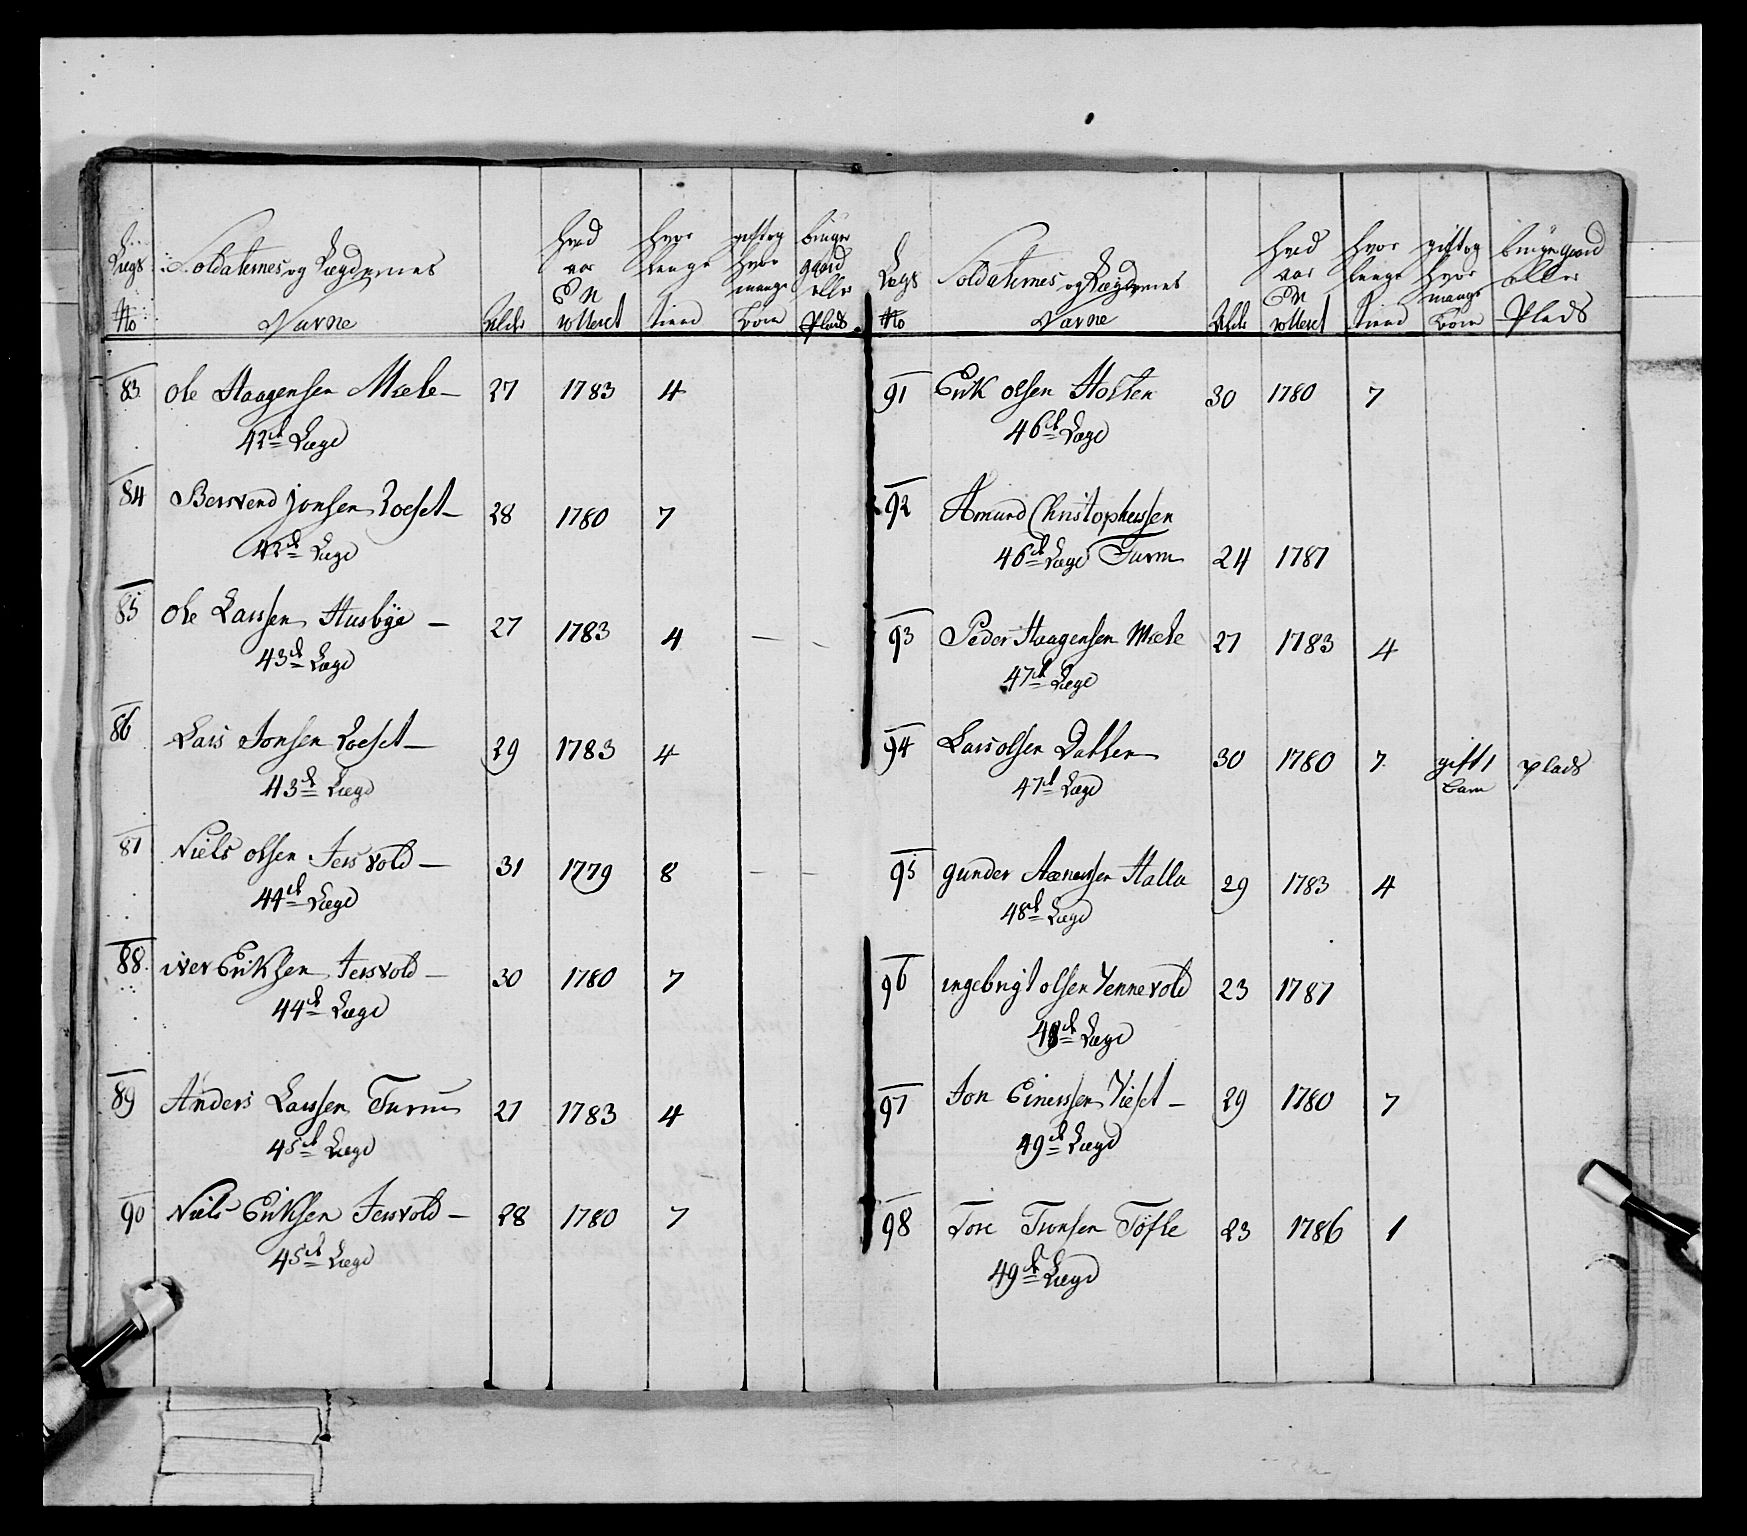 Lægs No
Soldaternes og Lægdernes Navne
Alder
hvad aar En rolleret
hvor lenge tient
gift og hvor mange børn
buger gaard eller Plads
83 Ole Haagensen Miele — 27 1783 4
42de Lægd
84 Bersvend Jonsen Loeset — 28 1780 7
42de Lægd
85 Ole Larssen Husbye — 27 1783 4 — -
43de Lægd
86 Lars Jonsen Loeset — 29 1783 4
43de Lægd
87 Niels Olsen Jersvold — 31 1779 8 — -
44de Lægd
88 iver Eriksen Jersvold — 30 1780 7
44de Lægd
89 Anders Larssen Furun 27 1783 4
45de Lægd
90 Niels Eriksen Jersvold — 28 1780 7
45de Lægd
Lægs No
Soldaternes og Lægdernes Navne
Alder
hvad aar En rolleret
hvor lenge tient
gift og hvor mange børn
buger gaard eller Plads
91 Erik Olsen Holten 30 1780 7
46de Lægd
92 Amund Christophersen
46de Lægd Furun 24 1787
93 Peder Haagensen Miele 27 1783 4
47de Lægd
94 Lars Olsen Dahlen 30 1780 7 gift 1 plads
barn
47de Lægd
95 gunder Halla 29 1783 4
48de Lægd
96 ingebrigt Olsen Vennevold 23 1787
48de Lægd
97 Jon Einersen — 29 1780 7
49de Lægd
98 Tore Tronsen Töfle 23 1786 1
49de Lægd